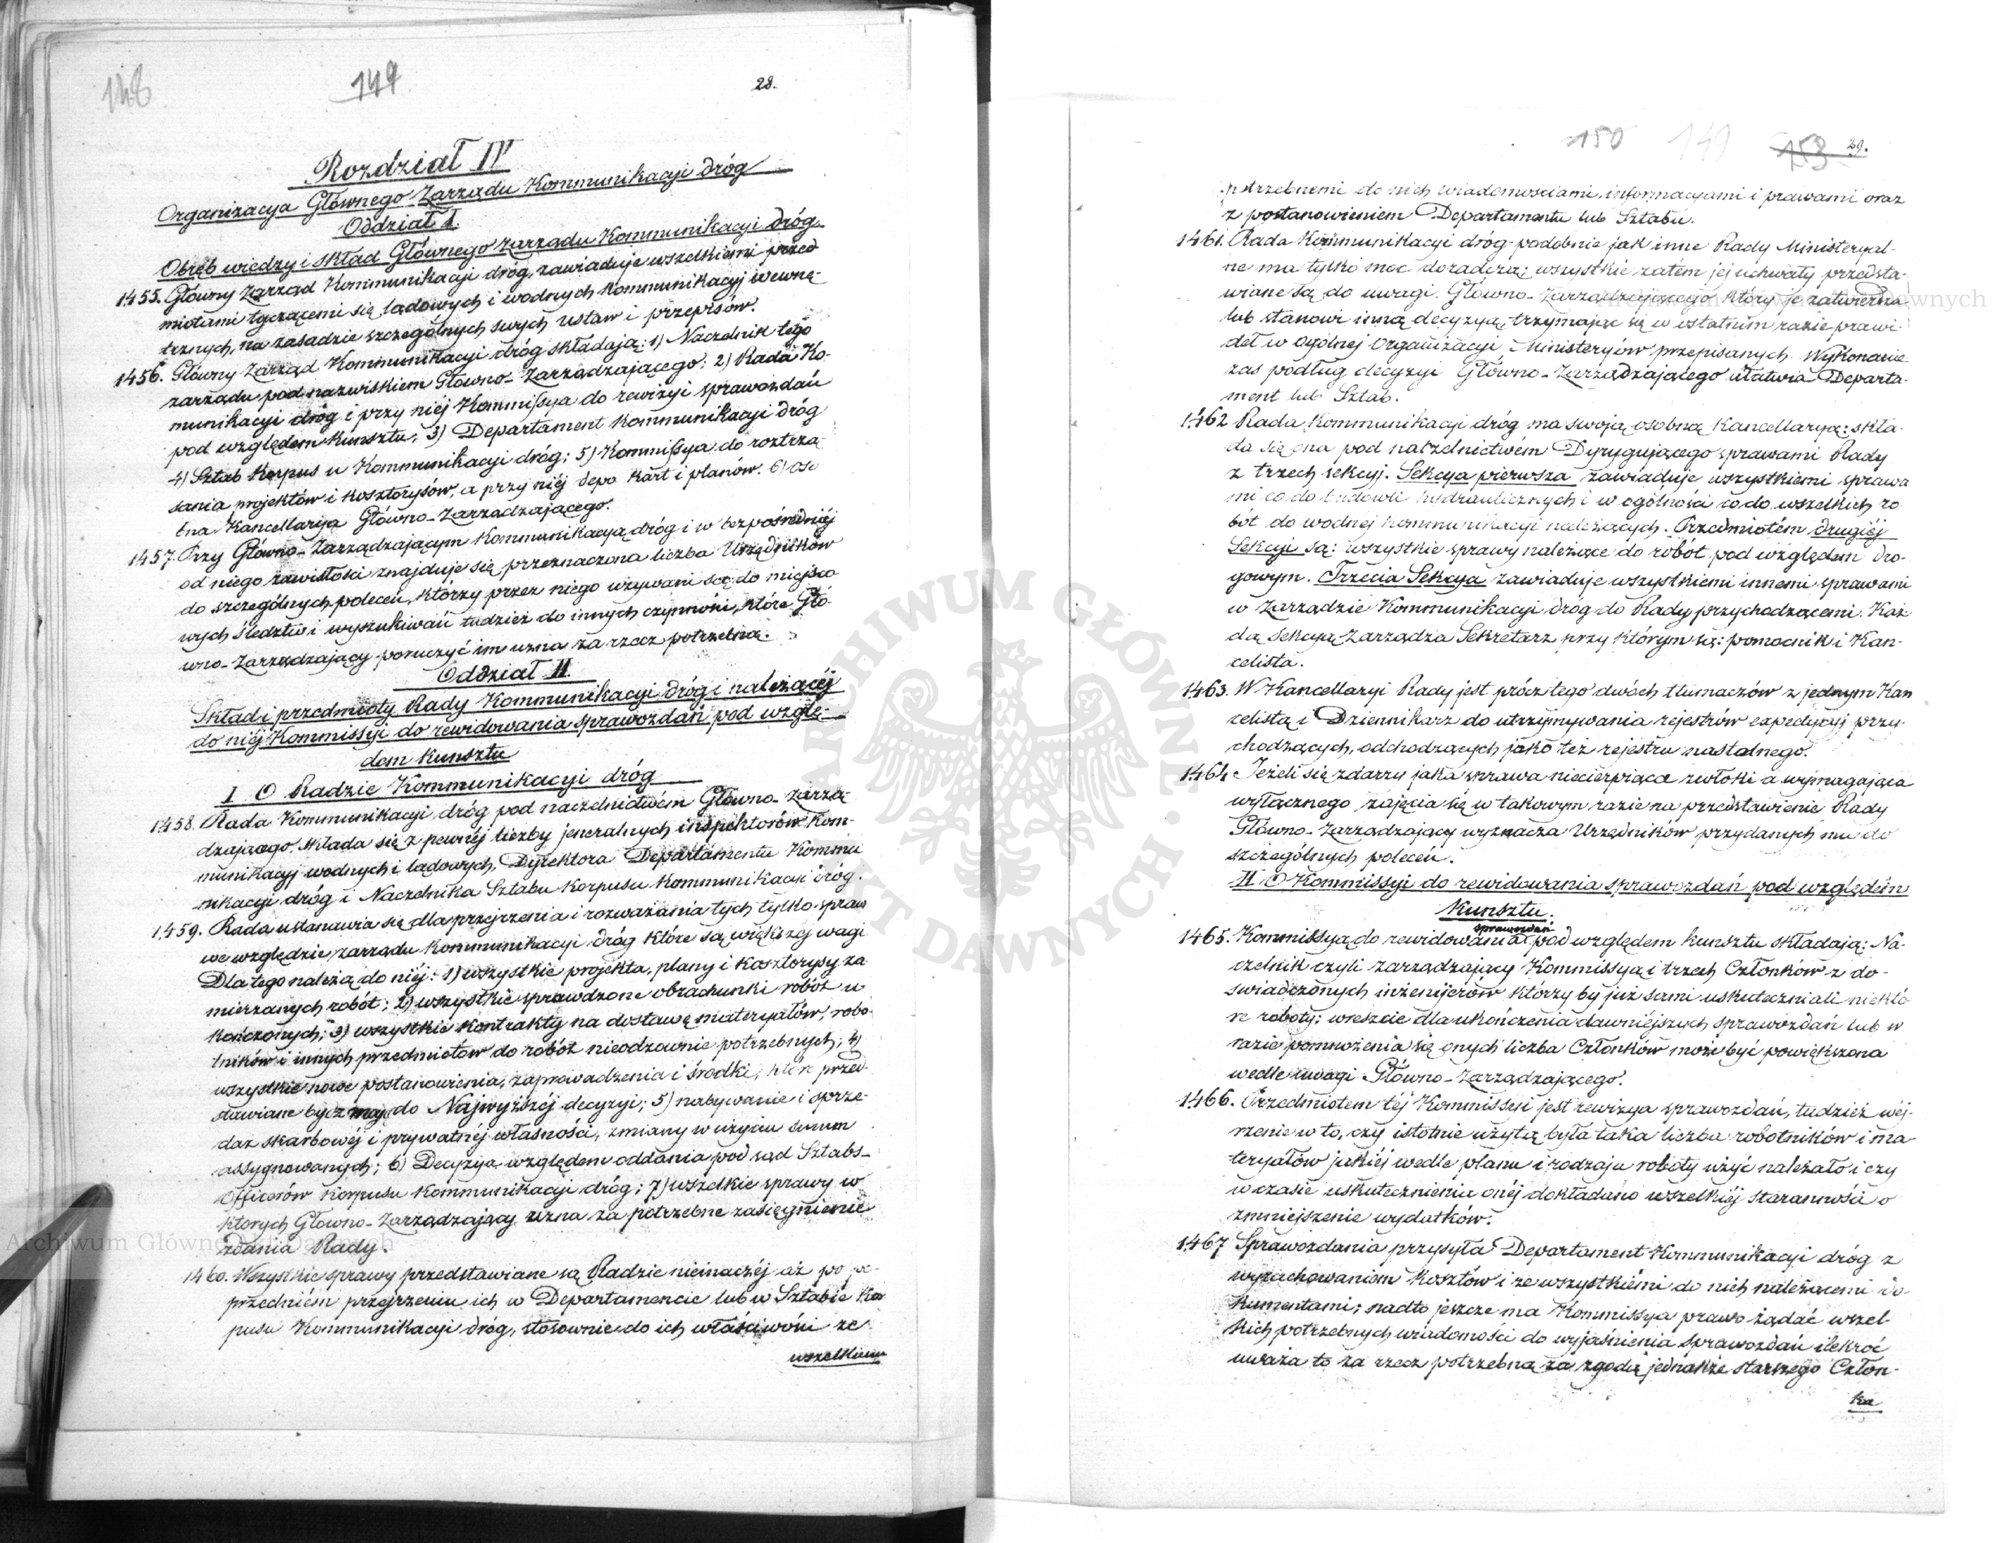 148
149
28.
Rozdział IV
Organizacya Głównego Zarządu Kommunikacyi dróg
Oddział I.
Obręb wiedzy i skład Głównego Zarządu Kommunikacyi dróg.
1455. Główny Zarząd Kommunikacyi dróg zawiaduje wszelkiemi przed
miotami tyczącemi się lądowych i wodnych Kommunikacyj wewnę-
trznych, na zasadzie szczególnych swych ustaw i przepisów.
1456. Główny Zarząd Kommunikacyi dróg składają: 1) Naczelnik tego
zarządu pod nazwiskiem Główno-Zarządzającego; 2) Rada Ko-
munikacyi dróg i przy niéj Kommissya do rewizyi sprawozdań
pod względem kunsztu; 3) Departament Kommunikacyi dróg
4) Sztab Korpusu Kommunikacyi dróg; 5) Kommissya do roztrzą-
sania projektów i kosztorysów, a przy niéj depo kart i planów. 6) oso
bna Kancellarya Główno-Zarządzającego.
1457. Przy Główno-Zarządzającym Kommunikacyą dróg i w bezpośredniéj
od niego zawisłości znajduje się przeznaczona liczba Urzędników
do szczególnych poleceń, którzy przez niego używani są do miejsco
wych śledztw i wyszukiwań tudzież do innych czynności, które Głó-
wno-Zarządzający poruczyć im uzna za rzecz potrzebną.
Oddział II.
Skład i przedmioty Rady Kommunikacyi dróg i należącéj
do niéj Kommissyi do rewidowania sprawozdań pod wzglę-
dem kunsztu
I O Radzie Kommunikacyi dróg
1458. Rada Kommunikacyi dróg pod naczelnictwém Główno-Zarzą
dzającego składa się z pewnéj liczby jeneralnych inspektorów Kom-
munikacyj wodnych i lądowych, Dyrektora Departamentu Kommu
nikacyi dróg i Naczelnika Sztabu Korpusu Kommunikacyi dróg.
1459. Rada ustanawia się dla przejrzenia i rozważania tych tylko spraw
we względzie zarządu Kommunikacyi dróg które są większej wagi
Dla tego należą do niéj: 1) wszystkie projekta, plany i kosztorysy za
mierzanych robót; 2) wszystkie sprawdzone obrachunki robót u
kończonych; 3) wszystkie kontrakty na dostawę materyałów, robo
tników i innych przedmiotów do robót nieodzownie potrzebnych; 4)
wszystkie nowe postanowienia, zaprowadzenia i środki, które przed
stawiane być mają do Najwyższéj decyzyi; 5) nabywanie i sprze-
daż skarbowéj i prywatnéj własności, zmiany w użyciu summ
assygnowanych; 6) Decyzya względem oddania pod sąd Sztabs-
Officerów Korpusu Kommunikacyi dróg; 7) wszelkie sprawy w
ktorych Główno-Zarządzający uzna za potrzebne zasięgnienie
zdania Rady.
1460. Wszystkie sprawy przedstawiane są Radzie nieinaczéj aż po po-
przedniém przejrzeniu ich w Departamencie lub w Sztabie Kor
pusu Kommunikacyi dróg, stosownie do ich właściwości ze
wszelkiemi
150
141
153
29.
potrzebnemi do nich wiadomościami, informacyami i prawami oraz
z postanowieniem Departamentu lub Sztabu.
1461. Rada Kommunikacyi dróg podobnie jak inne Rady Ministeryal-
ne ma tylko moc doradczą; wszystkie zatém jej uchwały przedsta-
wiane są do uwagi Główno-Zarządzającego który je zatwierdza
lub stanowi inną decyzyą, trzymając się w ostatnim razie prawi-
deł w ogólnej Organizacyi Ministeryów przepisanych. Wykonanie
zaś podług decyzyi Główno-Zarządzającego ułatwia Departa-
ment lub Sztab.
1462 Rada Kommunikacyi dróg ma swoją osobną Kancellaryą: skła-
da się ona pod naczelnictwém Dyrygującego sprawami Rady
z trzech sekcyj. Sekcya pierwsza zawiaduje wszystkiemi sprawa
mi co do budowli hydraulicznych i w ogólności co do wszelkich ro
bót do wodnej Kommunikacyi należących. Przedmiotem drugiéj
Sekcyi są: wszystkie sprawy należące do robót pod względem dro-
gowym. Trzecia Sekcya zawiaduje wszystkiemi innemi sprawami
w Zarządzie Kommunikacyi dróg do Rady przychodzącemi. Każ-
dą sekcyą zarządza Sekretarz przy którym są: pomocnik i Kan-
celista.
1463. W Kancellaryi Rady jest prócz tego dwóch tłumaczów z jednym Kan
celistą i Dziennikarz do utrzymywania rejestrów expedycyj przy-
chodzących, odchodzących jako też rejestru nastolnego.
1464 Jeżeli się zdarzy jaka sprawa niecierpiąca zwłoki a wymagająca
wyłącznego zajęcia się w takowym razie na przedstawienie Rady
Główno-Zarządzający wyznacza Urzędników przydanych mu do
szczególnych poleceń.
II O Kommissyi do rewidowania sprawozdań pod względém
Kunsztu.
sprawozdań
1465. Kommissyą do rewidowania pod względem kunsztu składają: Na-
czelnik czyli zarządzający Kommissyą i trzech Członków z do-
świadczonych inżenijerów którzy by już sami uskuteczniali niektó
re roboty; wreszcie dla ukończenia dawniejszych sprawozdań lub w
razie pomnożenia się onych liczba Członków może być powiększona
wedle uwagi Główno-Zarządzającego.
1466. Przedmiotem téj Kommissyi jest rewizya sprawozdań, tudzież wej-
rzenie w to, czy istotnie użytą była taka liczba robotników i ma
teryałów jakiéj wedle planu i rodzaju roboty użyć należało i czy
w czasie uskutecznienia onéj dokładano wszelkiéj staranności o
zmniejszenie wydatków.
1467 Sprawozdania przysyła Departament Kommunikacyi dróg z
wyrachowaniem kosztów i ze wszystkiémi do nich należącemi do-
kumentami; nadto jeszcze ma Kommissya prawo żądać wszel-
kich potrzebnych wiadomości do wyjaśnienia sprawozdań ilekroć
uważa to za rzecz potrzebną za zgodą jednakże starszego Człon-
ka
Archiwum Główne Akt Dawnych
ARCHIWUM GŁÓWNE AKT DAWNYCH